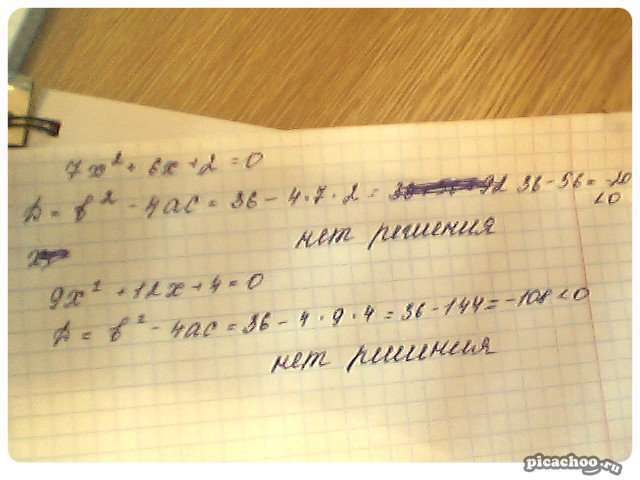 7x² + 6x + 2 = 0
D = b² - 4ac = 36 - 4·7·2 = 36 - 56 = -20
<0
нет решения
9x² + 12x + 4 = 0
D = b² - 4ac = 36 - 4·9·4 = 36 - 144 = -108 <0
нет решения
picachoo.ru